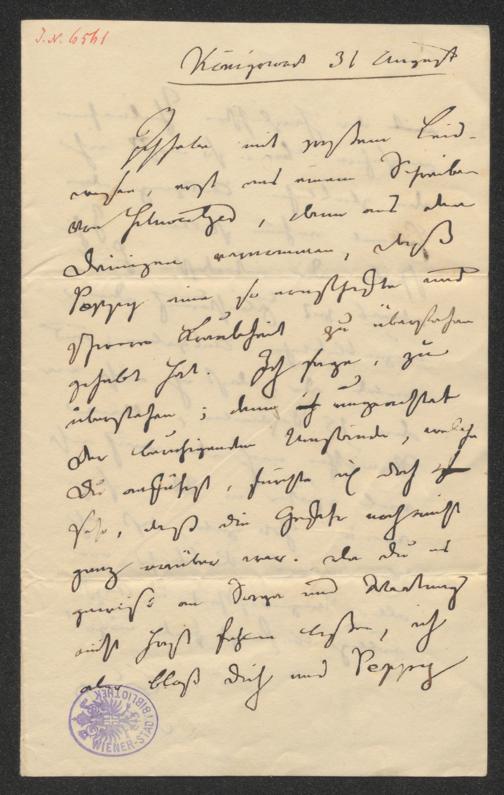 J.N. 6561
Königswart 31 August
Ich habe mit großem Leid-
wesen erst aus einem Schreiben
von , dann aus dem
Deinigen vernommen, daß
Peppy eine so ernsthafte und
schwere Krankheit zu überstehen
gehabt hat. Ich sage, zu
überstehen; denn ungeachtet
der beruhigenden Umstände, welche
Du anführst, fürchte ich doch
sehr, daß die Gefahr noch nicht
ganz vorüber war. Da Du es
gewiß an Sorge und Wartung
nicht hast fehlen lassen, ich
aber bloß Dich und Peppy
WIENER STADTBIBLIOTHEK